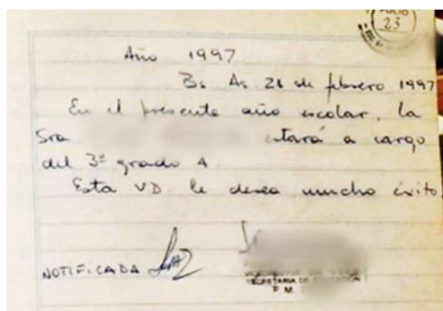 23
Año 1997
Bs As 26 de febrero 1997
En el presente año escolar, la
Sra estará a cargo
del 3º grado A.
Esta VD. le desea mucho éxito
NOTIFICADA
SECRETARIA DE
M